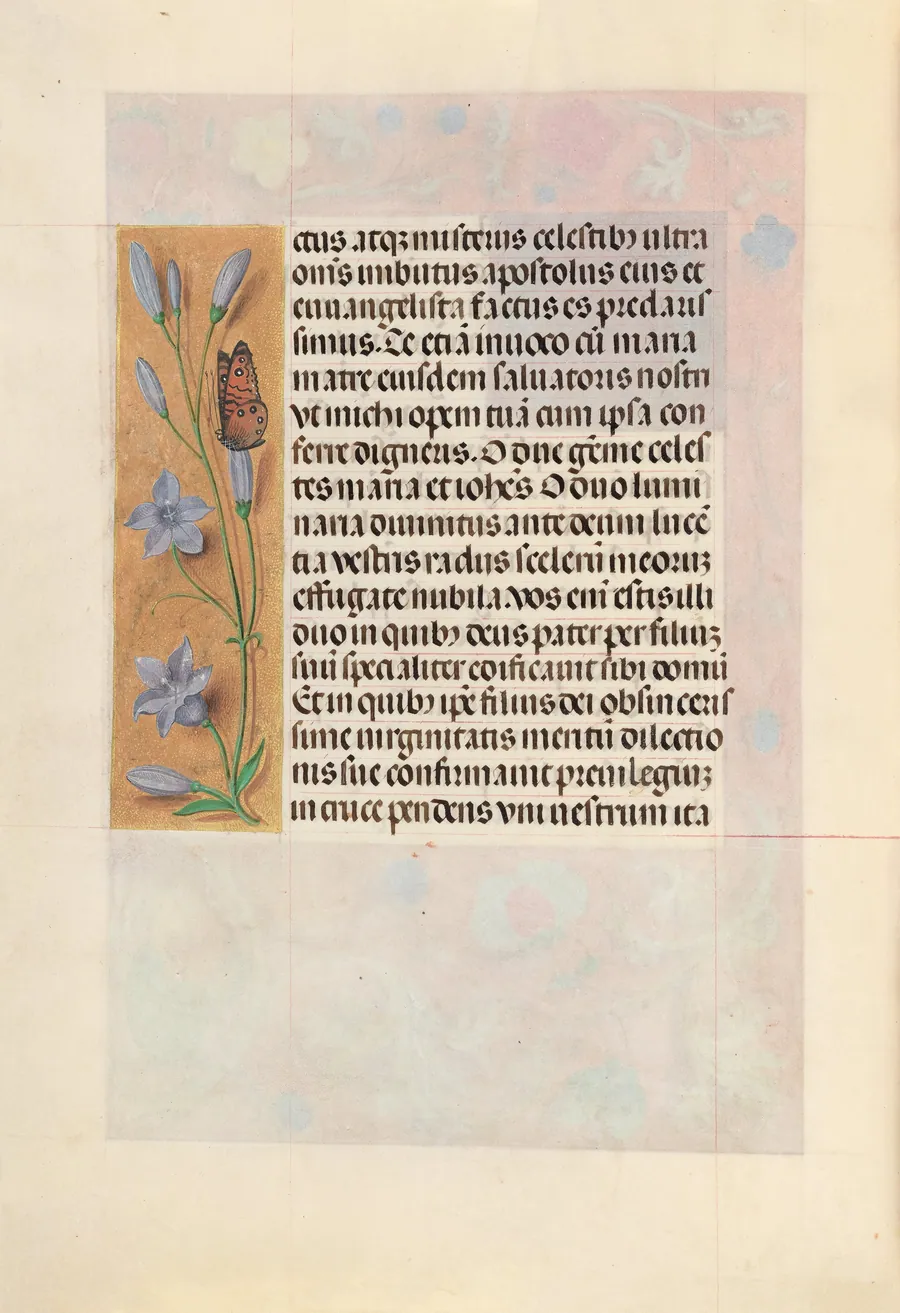 ctus atqꝫ misteriis celestibꝯ ultra
om̄s imbutus apostolus eius et
euuangelista factus es preclaris
simus. Te eciā inuoco cū maria
matre eiusdem saluatoris nostri
vt michi opem tuā cum ipsa con
ferre digneris. O due gēme celes
tes maria et ioh̄es O duo lumi
naria diuinitus ante deum lucē
tia vestris radiis scelerū meoruꝫ
effugate nubila. vos eni̅ estis illi
duo in quibꝯ deus pater per filiuꝫ
suū specialiter edificauit sibi domū
Et in quibꝯ ip̄e filius dei ob sinceris
sime uirginitatis meritū dilectio
nis sue confirmauit preuilegiuꝫ
in cruce pendens vni uestrum ita